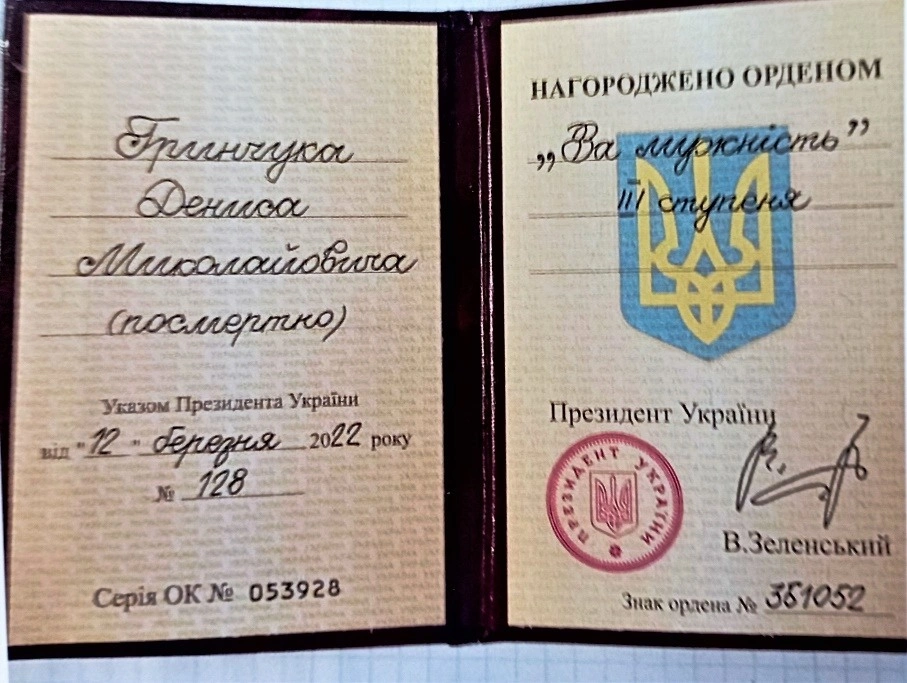 Гринчука
Дениса
Миколайовича
(посмертно)
Указом Президента України
від "12" березня 2022 року
№ 128
Серія ОК № 053928
НАГОРОДЖЕНО ОРДЕНОМ
„За мужність”
III ступеня
Президент України
ПРЕЗИДЕНТ УКРАЇНИ
В.Зеленський
Знак ордена №